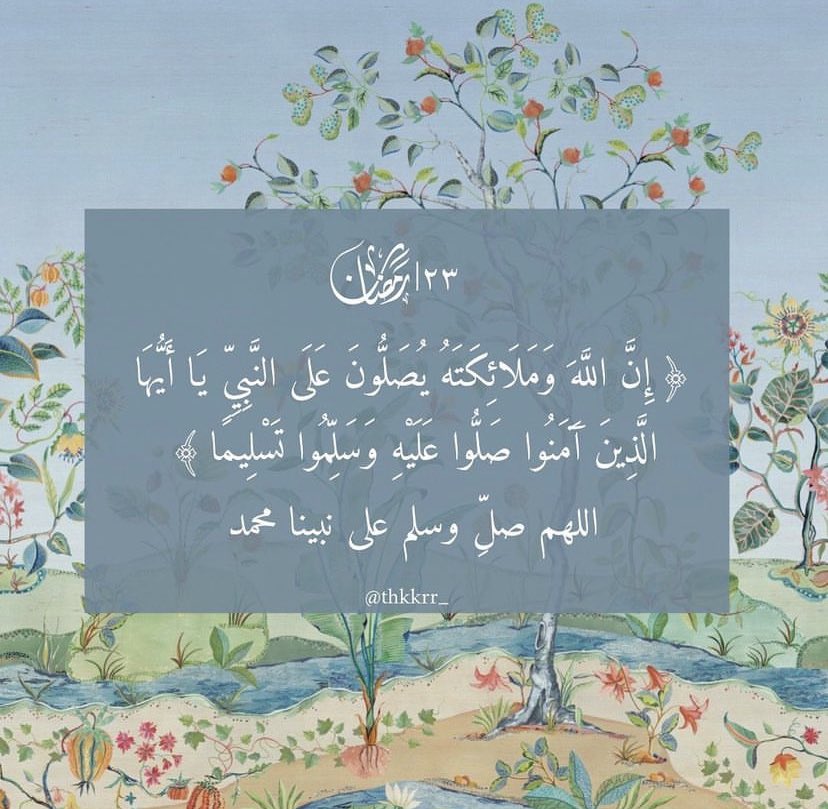 ٢٣|رمضان
﴿ إِنَّ اللَّهَ وَمَلَائِكَتَهُ يُصَلُّونَ عَلَى النَّبِيِّ يَا أَيُّهَا
الَّذِينَ آمَنُوا صَلُّوا عَلَيْهِ وَسَلِّمُوا تَسْلِيمًا ﴾
اللهم صلِّ وسلم على نبينا محمد
@thkkrr_